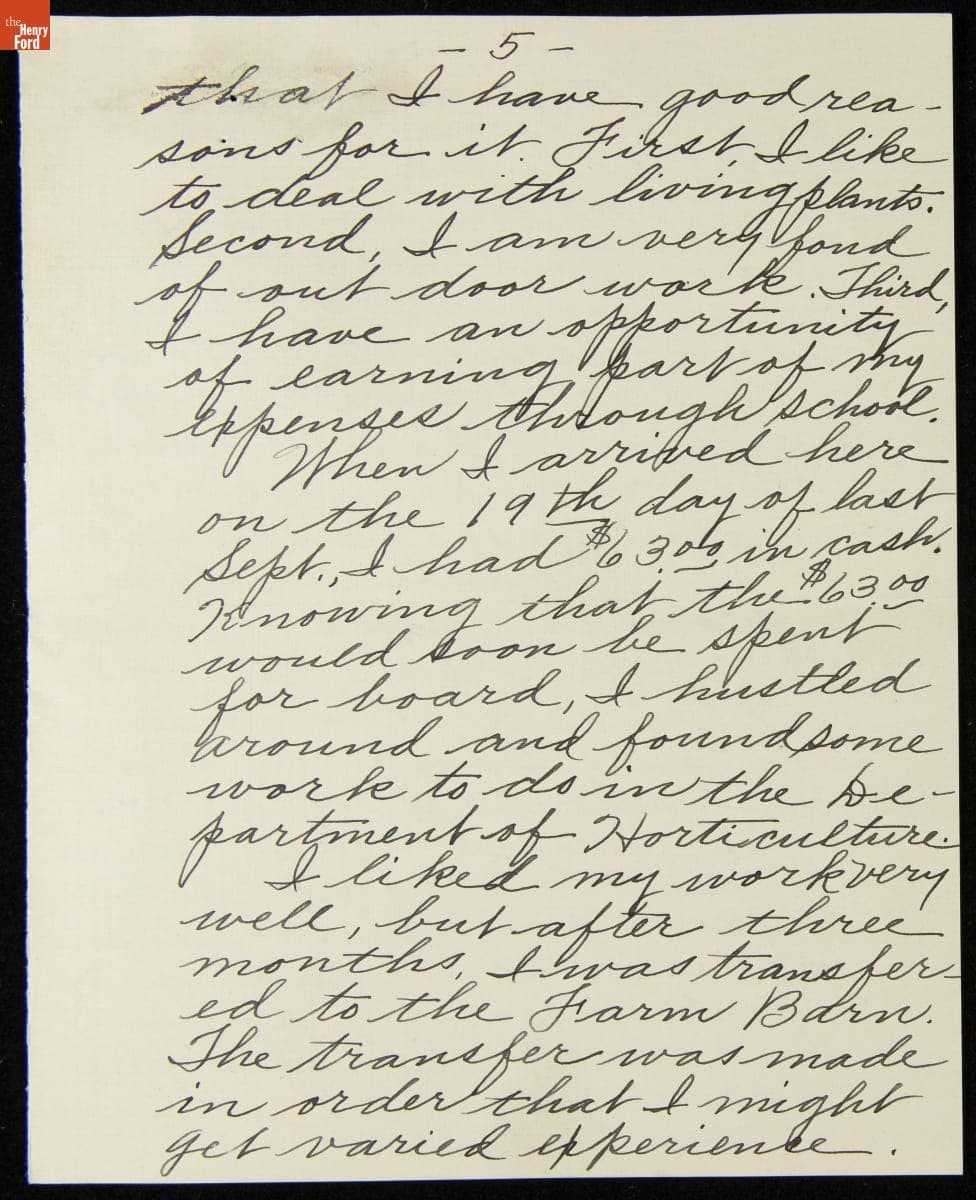 the
Henry
Ford
- 5 -
that I have good rea-
sons for it. First, I like
to deal with living plants.
Second, I am very fond
of out door work. Third,
I have an opportunity
of earning part of my
expenses through school.
When I arrived here
on the 19th day of last
Sept., I had $63.00 in cash.
Knowing that the $63.00
would soon be spent
for board, I hustled
around and found some
work to do in the De-
partment of Horticulture.
I liked my work very
well, but after three
months, I was transfer-
ed to the Farm Barn.
The transfer was made
in order that I might
get varied experience.